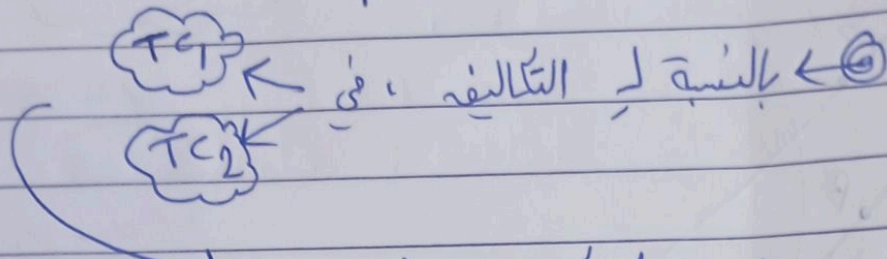 ← بالنسبة لـ التكاليف ، في ← TC1
TC2